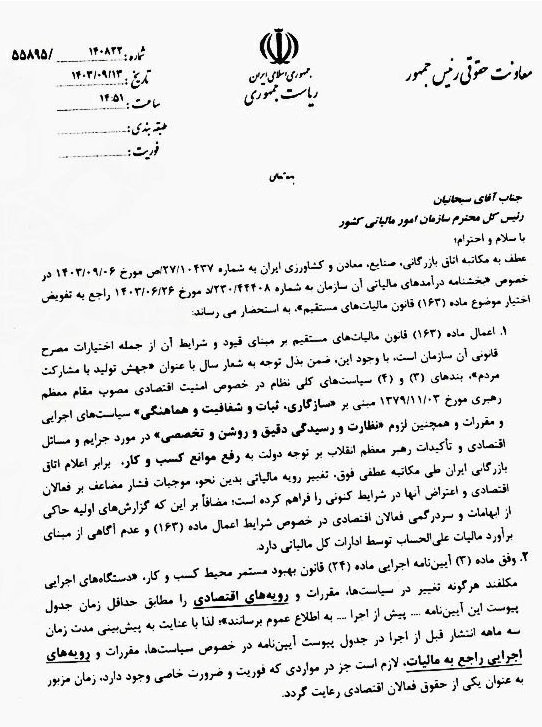 معاونت حقوقی رئیس جمهور
جمهوری اسلامی ایران
ریاست جمهوری
شماره: ۱۴۰۸۳۲ /۵۵۸۹۵
تاریخ: ۱۴۰۳/۰۹/۱۳
ساعت: ۱۴:۵۱
طبقه بندی:
فوریت:
بسمه تعالی
جناب آقای سبحانیان
رئیس کل محترم سازمان امور مالیاتی کشور
با سلام و احترام؛
عطف به مکاتبه اتاق بازرگانی، صنایع، معادن و کشاورزی ایران به شماره ۲۷/۱۰۴۳۷/ص مورخ ۱۴۰۳/۰۹/۰۶ در
خصوص «بخشنامه درآمدهای مالیاتی آن سازمان به شماره ۲۳۰/۴۴۴۰۸/د مورخ ۱۴۰۳/۰۶/۲۶ راجع به تفویض
اختیار موضوع ماده (۱۶۳) قانون مالیات‌های مستقیم»، به استحضار می رساند:
۱. اعمال ماده (۱۶۳) قانون مالیات‌های مستقیم بر مبنای قیود و شرایط آن از جمله اختیارات مصرح
قانونی آن سازمان است، با وجود این، ضمن بذل توجه به شعار سال با عنوان «جهش تولید با مشارکت
مردم»، بندهای (۳) و (۴) سیاست‌های کلی نظام در خصوص امنیت اقتصادی مصوب مقام معظم
رهبری مورخ ۱۳۷۹/۱۱/۰۳ مبنی بر «سازگاری، ثبات و شفافیت و هماهنگی» سیاست‌های اجرایی
و مقررات و همچنین لزوم «نظارت و رسیدگی دقیق و روشن و تخصصی» در مورد جرایم و مسائل
اقتصادی و تأکیدات رهبر معظم انقلاب بر توجه دولت به رفع موانع کسب و کار، برابر اعلام اتاق
بازرگانی ایران طی مکاتبه عطفی فوق، تغییر رویه مالیاتی بدین نحو، موجبات فشار مضاعف بر فعالان
اقتصادی و اعتراض آنها در شرایط کنونی را فراهم کرده است؛ مضافاً بر این که گزارش‌های اولیه حاکی
از ابهامات و سردرگمی فعالان اقتصادی در خصوص شرایط اعمال ماده (۱۶۳) و عدم آگاهی از مبنای
برآورد مالیات علی‌الحساب توسط ادارات کل مالیاتی دارد.
۲. وفق ماده (۳) آیین‌نامه اجرایی ماده (۲۴) قانون بهبود مستمر محیط کسب و کار، «دستگاه‌های اجرایی
مکلفند هرگونه تغییر در سیاست‌ها، مقررات و رویه‌های اقتصادی را مطابق حداقل زمان جدول
پیوست این آیین‌نامه .... پیش از اجرا .... به اطلاع عموم برسانند»؛ لذا با عنایت به پیش‌بینی مدت زمان
سه ماهه انتشار قبل از اجرا در جدول پیوست آیین‌نامه در خصوص سیاست‌ها، مقررات و رویه‌های
اجرایی راجع به مالیات، لازم است جز در مواردی که فوریت و ضرورت خاصی وجود دارد، زمان مزبور
به عنوان یکی از حقوق فعالان اقتصادی رعایت گردد.